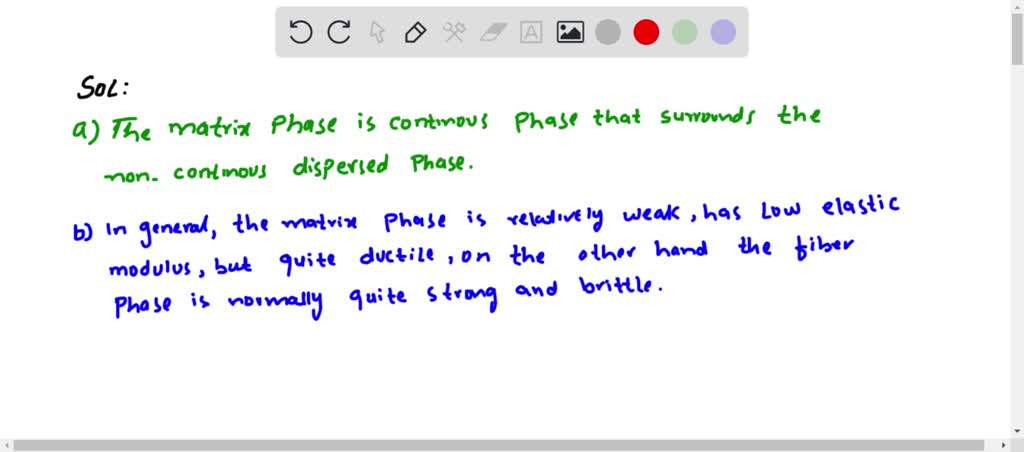 SOL:
a) The matrix Phase is continous Phase that surrounds the
non- continous dispersed Phase.
b) In general, the matrix Phase is relatively weak, has Low elastic
modulus, but quite ductile, on the other hand the fiber
Phase is normally quite strong and brittle.